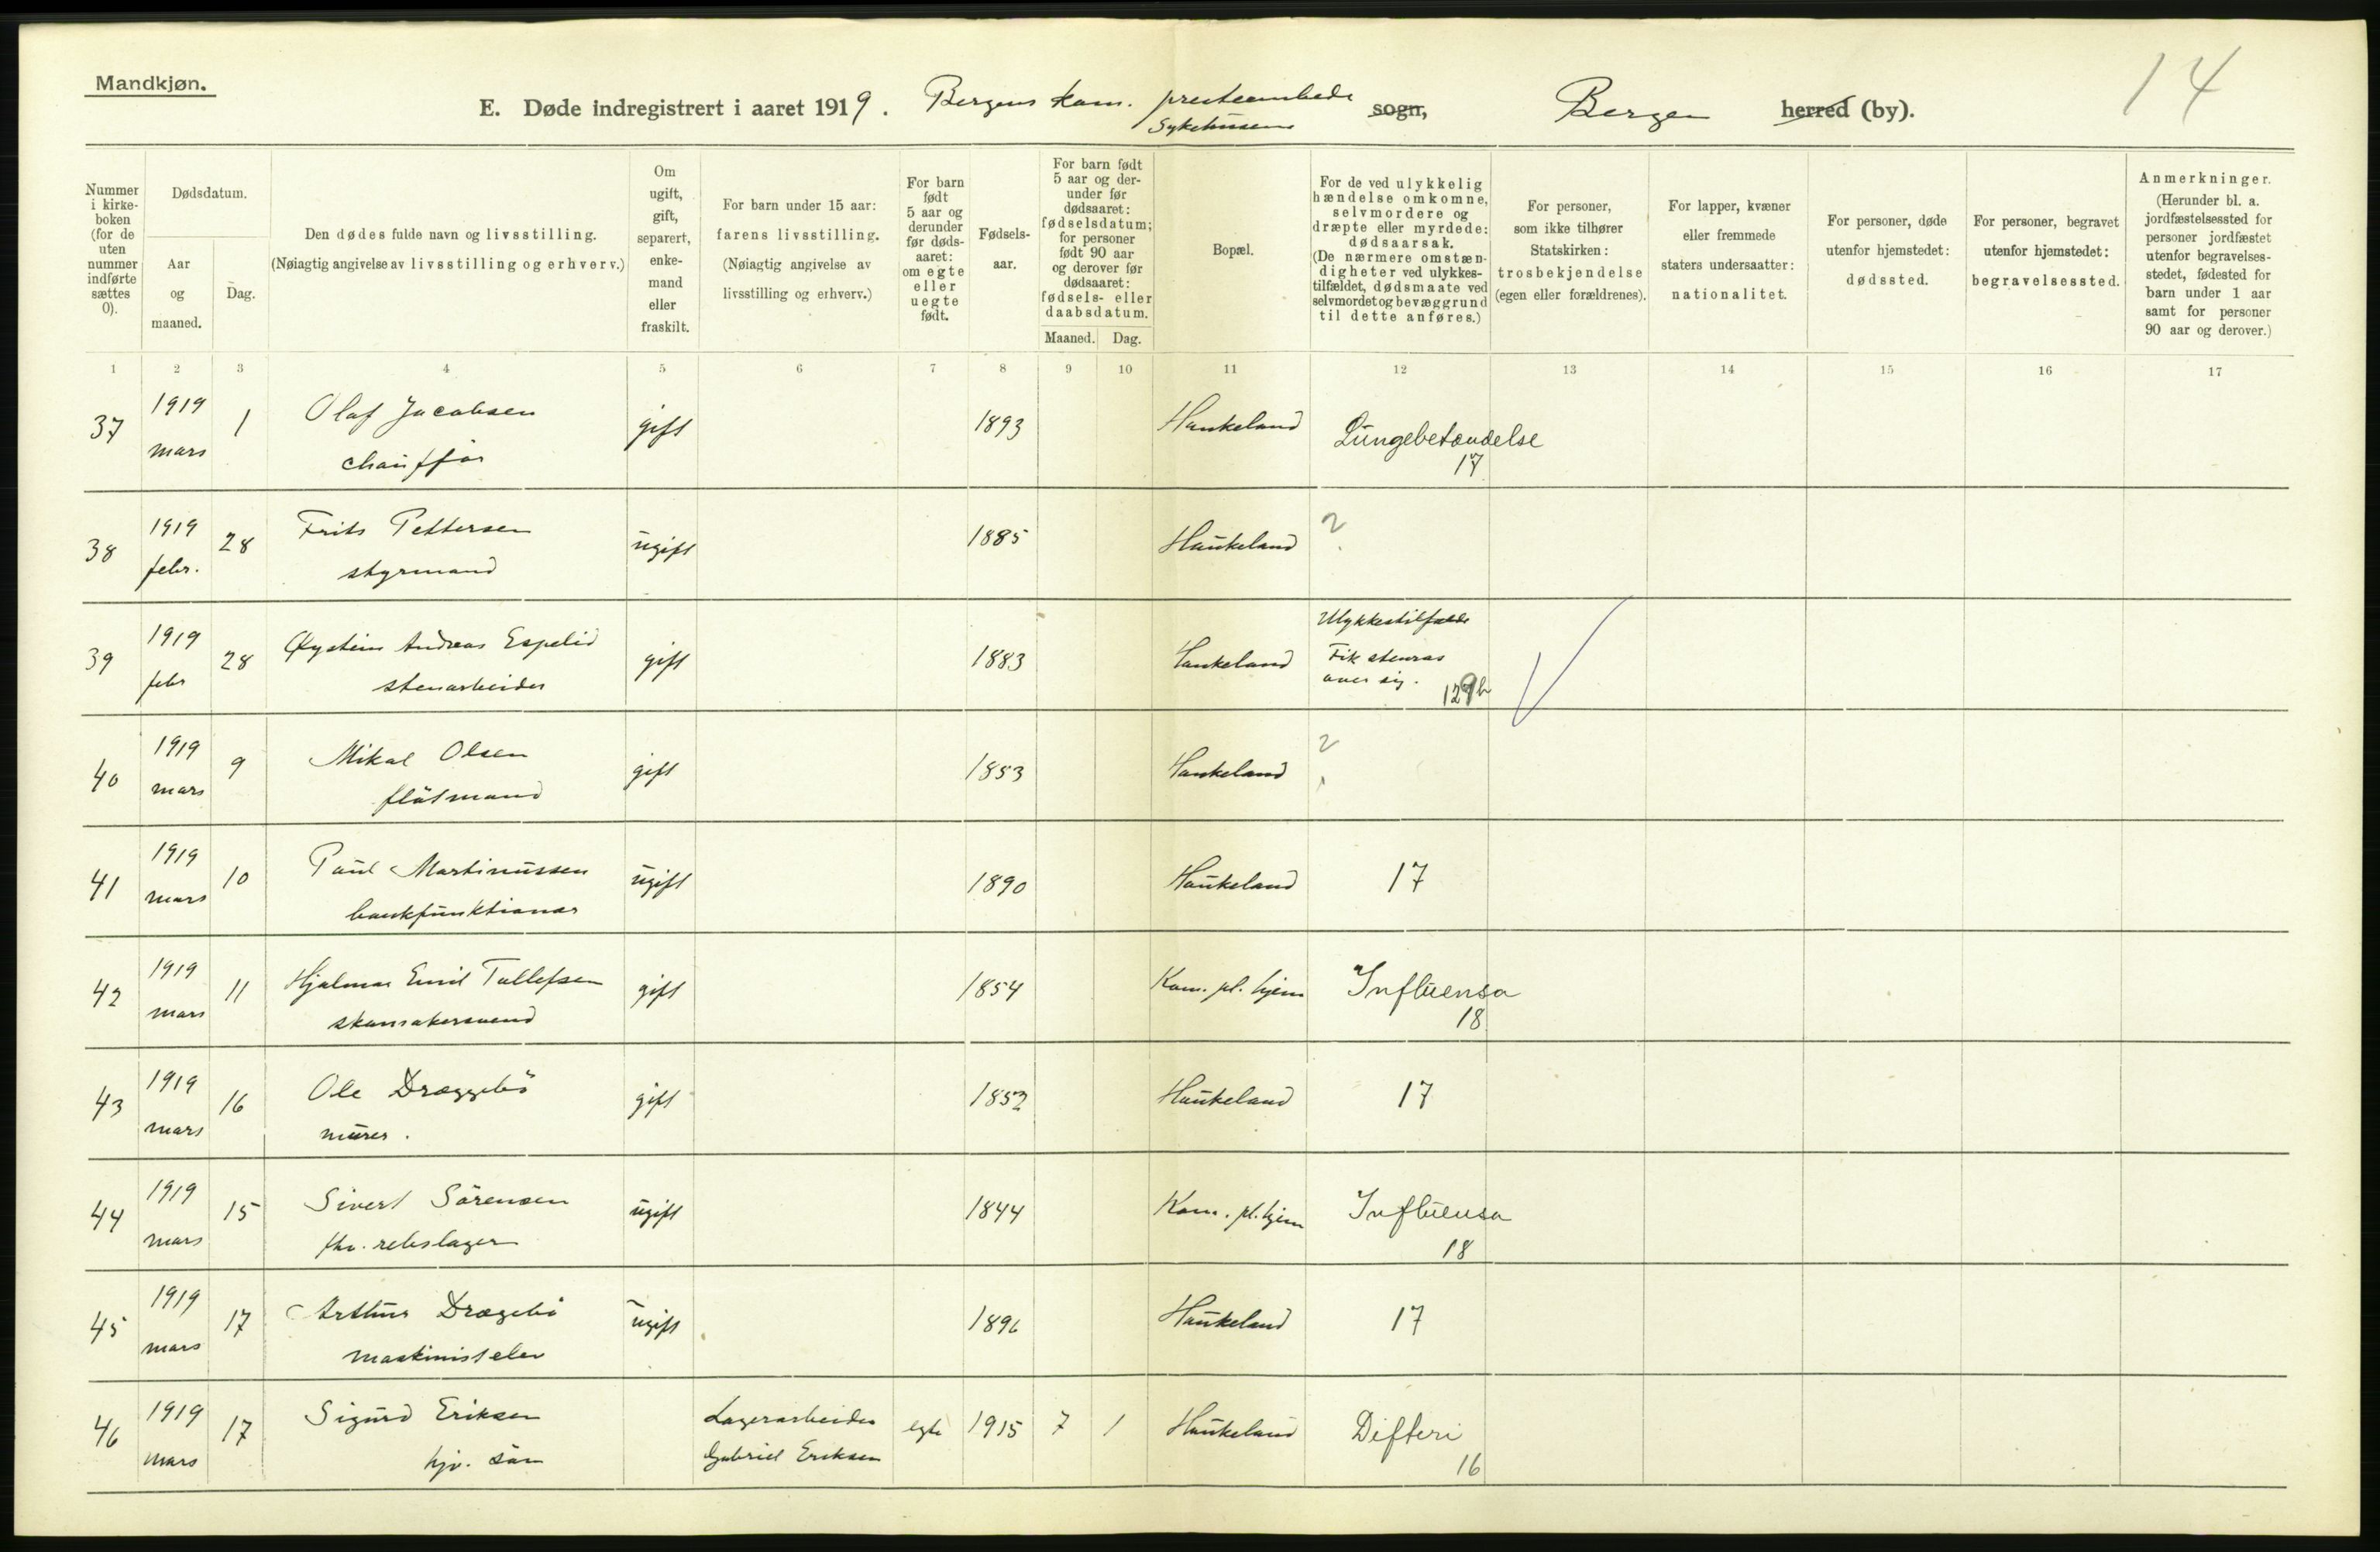 Mandkjøn.
14
E. Døde indregistrert i aaret 1919. Bergens kom. presteembede sogn, Bergen herred (by).
Sykehusene
Nummer i kirke-boken (for de uten nummer indførte sættes 0).
Dødsdatum.
Aar og maaned.
Dag.
Den dødes fulde navn og livsstilling.
(Nøiagtig angivelse av livsstilling og erhverv.)
Om ugift, gift, separert, enke-mand eller fraskilt.
For barn under 15 aar: farens livsstilling. (Nøiagtig angivelse av livsstilling og erhverv.)
For barn født 5 aar og derunder før døds-aaret: om egte eller uegte født.
Fødsels-aar.
For barn født 5 aar og der-under før dødsaaret: fødselsdatum; for personer født 90 aar og derover før dødsaaret: fødsels- eller daabsdatum.
Maaned. Dag.
Bopæl.
For de ved ulykkelig hændelse omkomne, selvmordere og dræpte eller myrdede: dødsaarsak. (De nærmere omstæn-digheter ved ulykkes-tilfældet, dødsmaate ved selvmordet og bevæggrund til dette anføres.)
For personer, som ikke tilhører Statskirken: trosbekjendelse (egen eller forældrenes).
For lapper, kvæner eller fremmede staters undersaatter: nationalitet.
For personer, døde utenfor hjemstedet: dødssted.
For personer, begravet utenfor hjemstedet: begravelsessted.
Anmerkninger. (Herunder bl. a. jordfæstelsessted for personer jordfæstet utenfor begravelses-stedet, fødested for barn under 1 aar samt for personer 90 aar og derover.)
1 2 3 4 5 6 7 8 9 10 11 12 13 14 15 16 17
37 1919 mars 1 Olaf Jacobsen gift 1893 Haukeland Lungebetændelse
chauffør 17
38 1919 febr. 28 Frits Pettersen ugift 1885 Haukeland ?
styrmand
39 1919 febr 28 Øystein Andreas Espelid gift 1883 Haukeland Ulykkestilfælde
stenarbeider Fik stenras
over sig.
129b
40 1919 mars 9 Mikal Olsen gift 1853 Haukeland ?
fløtmand
41 1919 mars 10 Paul Martinussen ugift 1890 Haukeland 17
bankfunktionær
42 1919 mars 11 Hjalmar Emil Tollefsen gift 1854 Kom. pl. hjem Influensa
skomakersvend 18
43 1919 mars 16 Ole Dræggebø gift 1852 Haukeland 17
murer.
44 1919 mars 15 Sivert Sörensen ugift 1844 Kom. pl. hjem Influensa
fhv. rebslager 18
45 1919 mars 17 Arthur Drægebø ugift 1896 Haukeland 17
maskinistelev
46 1919 mars 17 Sigurd Eriksen Lagerarbeider egte 1915 7 1 Haukeland Difteri
hjv. søn Gabriel Eriksen 16